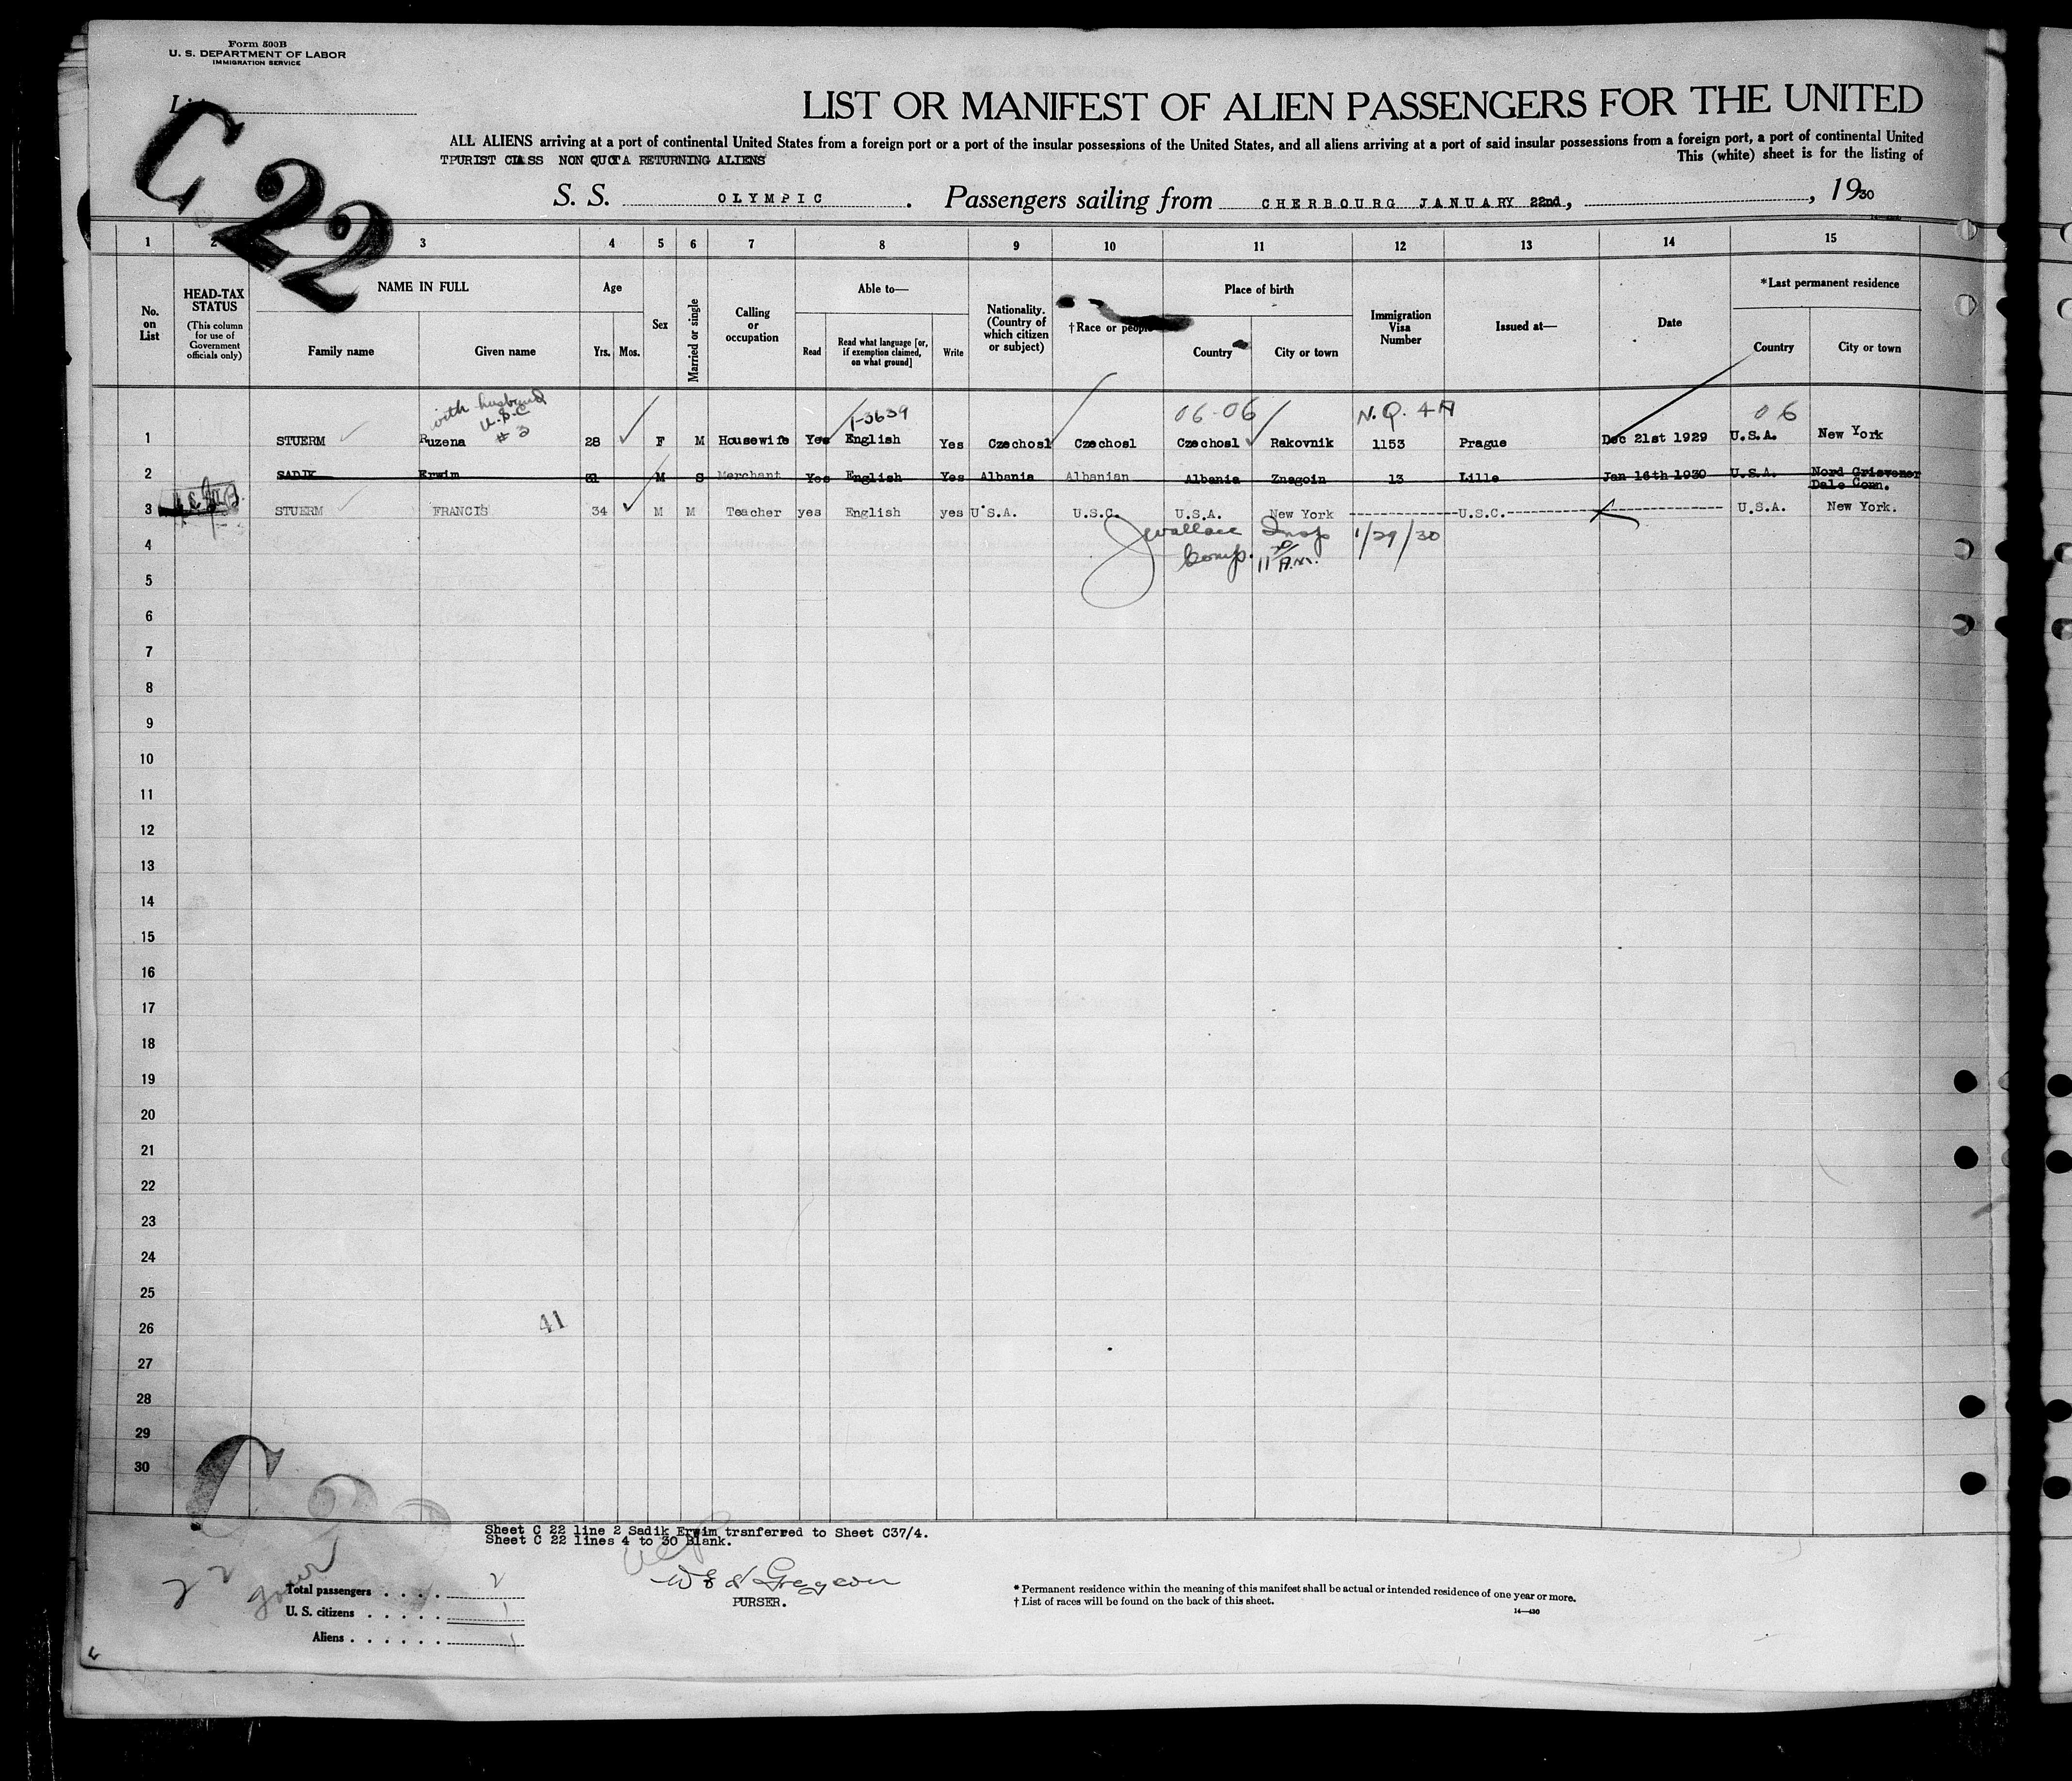 Form 500B
U. S. DEPARTMENT OF LABOR
IMMIGRATION SERVICE
List
C 22
LIST OR MANIFEST OF ALIEN PASSENGERS FOR THE UNITED
ALL ALIENS arriving at a port of continental United States from a foreign port or a port of the insular possessions of the United States, and all aliens arriving at a port of said insular possessions from a foreign port, a port of continental United
TPURIST CLASS NON QUOTA RETURNING ALIENS
This (white) sheet is for the listing of
S. S. OLYMPIC. Passengers sailing from CHERBOURG JANUARY 22nd, , 1930
1 2 3 4 5 6 7 8 9 10 11 12 13 14 15
No. on List
HEAD-TAX STATUS
(This column for use of Government officials only)
NAME IN FULL
Family name
Given name
Age
Yrs. Mos.
Sex
Married or single
Calling or occupation
Able to—
Read
Read what language [or, if exemption claimed, on what ground]
Write
Nationality. (Country of which citizen or subject)
†Race or people
Place of birth
Country
City or town
Immigration Visa Number
Issued at—
Date
*Last permanent residence
Country
City or town
with husband
U.S.C
# 3
1-3639
06-06
N.Q. 4A
06
1 STUERM Ruzena 28 F M Housewife Yes English Yes Czechosl Czechosl Czechosl Rakovnik 1153 Prague Dec 21st 1929 U.S.A. New York
2 SADIK Erwim 31 M S Merchant Yes English Yes Albania Albanian Albania Znagoin 13 Lille Jan 16th 1930 U.S.A. Nord Grisvenor
Dale Conn.
3 STUERM FRANCIS 34 M M Teacher yes English yes U.S.A. U.S.C. U.S.A. New York ------------U.S.C.------------ U.S.A. New York.
4
J Wallace Insp 1/29/30
Comp. 11 30/A.M.
5
6
7
8
9
10
11
12
13
14
15
16
17
18
19
20
21
22
23
24
25
41
26
27
28
29
30
C 22
Sheet C 22 line 2 Sadik Erwim trsnferred to Sheet C37/4.
Sheet C 22 lines 4 to 30 Blank.
22
Total passengers . . . . 2
U. S. citizens . . . . . 1
Aliens . . . . . . 1
PURSER.
* Permanent residence within the meaning of this manifest shall be actual or intended residence of one year or more.
† List of races will be found on the back of this sheet.
14—430